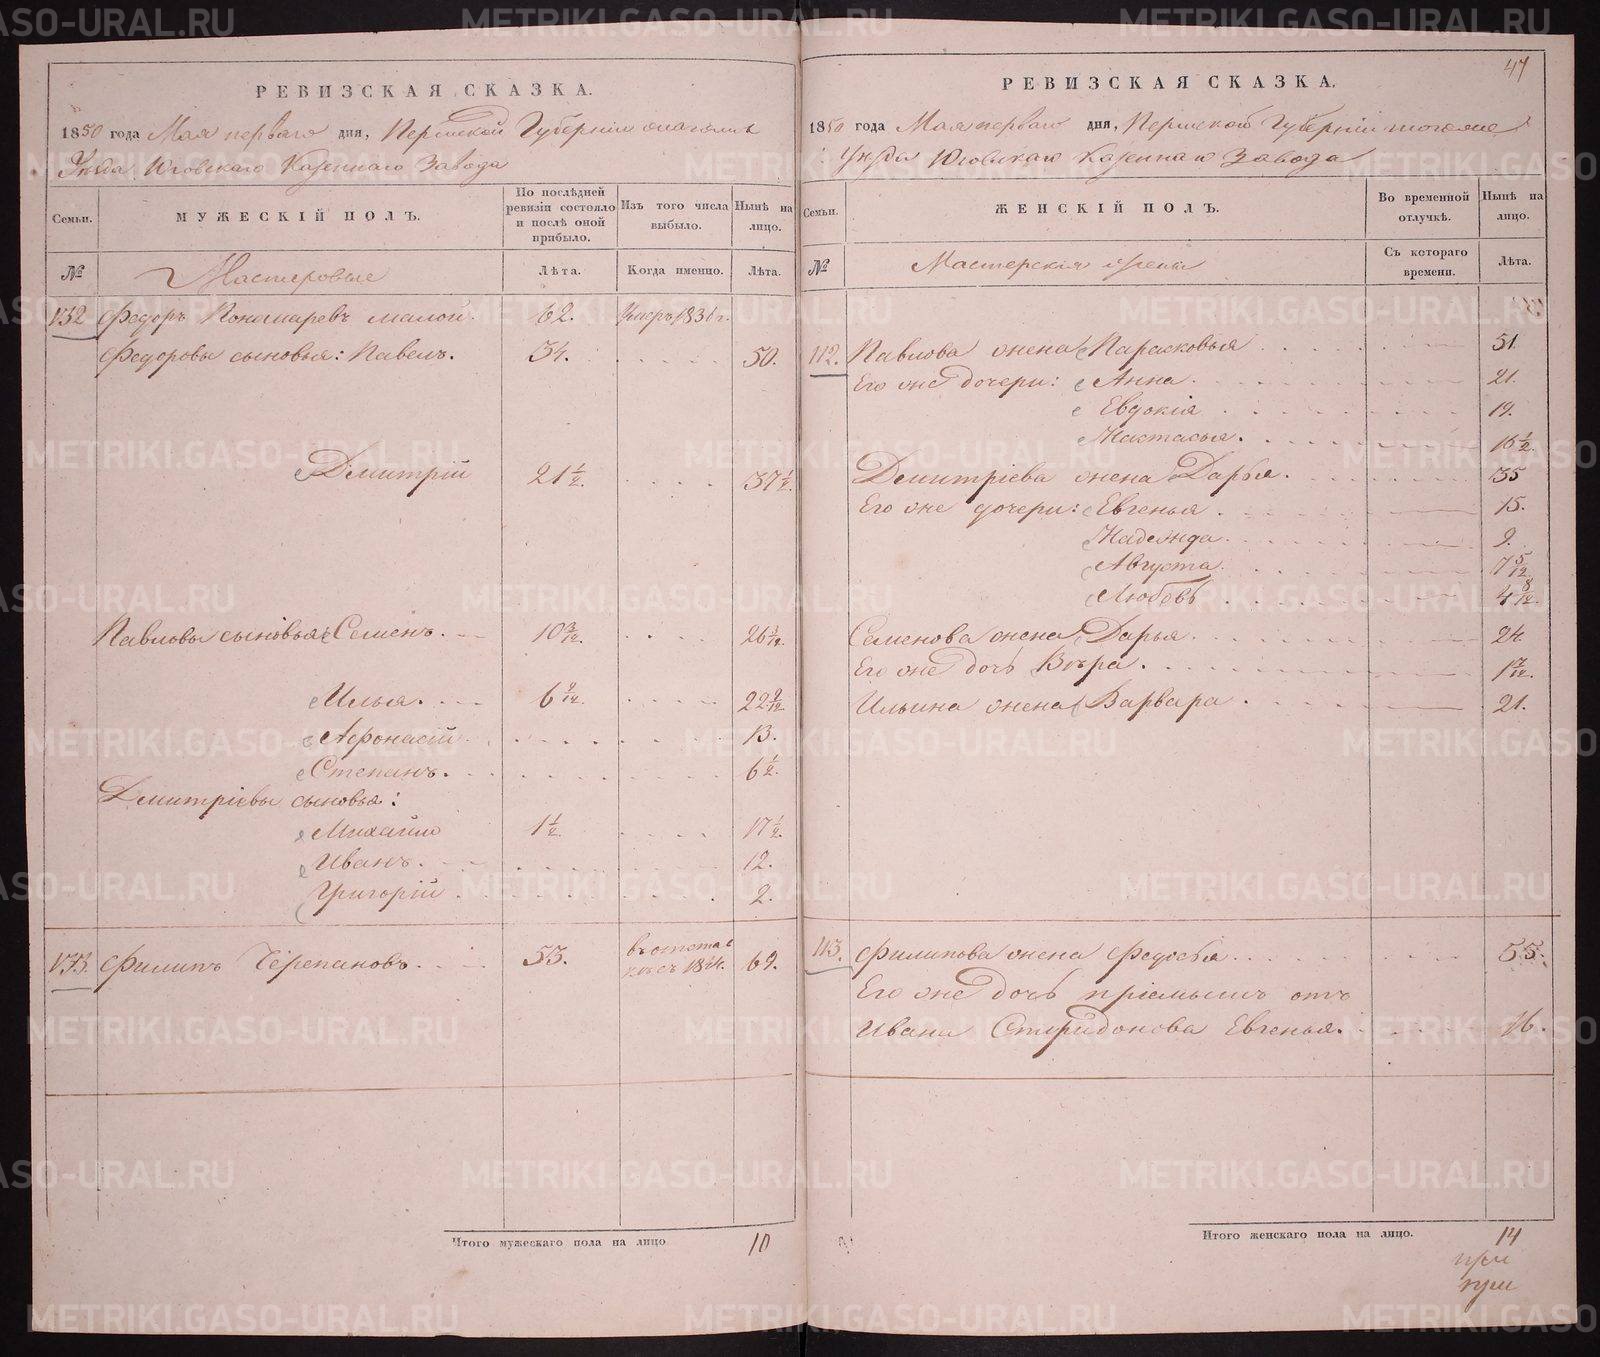 РЕВИЗСКАЯ СКАЗКА.
1850 года Мая перваго дня, Пермской Губернiи
Уѣзда Юговскаго Казеннаго Завода
Семьи.
МУЖЕСКIЙ ПОЛЪ.
По послѣдней ревизiи состояло и послѣ оной прибыло.
Изъ того числа выбыло.
Нынѣ на лицо.
№
Мастеровые
Лѣта.
Когда именно.
Лѣта.
132 Федоръ Пономаревъ малой. 62. Умеръ 183 г.
Федоровы сыновья: Павелъ. 34. 50.
Дмитрiй 21 1/2. 37 1/2.
Павловы сыновья: Семенъ. 10 3/12. 26 3/12.
Илья. 6 9/12. 22 9/12
Афонасiй 13.
Степанъ. 6 1/2.
Дмитрiевы сыновья:
Михайло 1 1/2 17 1/2.
Иванъ. 12.
Григорiй 2.
133. Филипъ Черепановъ. 53. въ отстав
кѣ съ 184 г. 69.
Итого мужескаго пола на лицо 10
47
РЕВИЗСКАЯ СКАЗКА.
1850 года Мая перваго дня, Пермской Губернiи тогоже
Уѣзда Юговскаго Казеннаго Завода
Семьи.
ЖЕНСКIЙ ПОЛЪ.
Во временной отлучкѣ.
Нынѣ на лицо.
№
Мастерскiя жены
Съ котораго времени.
Лѣта.
112. Павлова жена Парасковья 51.
Его же дочери: Анна. 21.
Евдокiя 19.
Настасья. 16 1/2.
Дмитрiева жена Дарья. 35
Его же дочери: Евгенья. 15.
Надежда. 9.
Августа. 7 5/12
Любовь 4 8/12.
Семенова жена Дарья. 24.
Его же дочь Вѣра. 1 7/12.
Ильина жена Варвара 21.
113. Филипова жена Федосья 55.
Его же дочь прiемышъ отъ
Ивана Спиридонова Евгенья. 16.
Итого женскаго пола на лицо. 14
METRIKI.GASO-URAL.RU